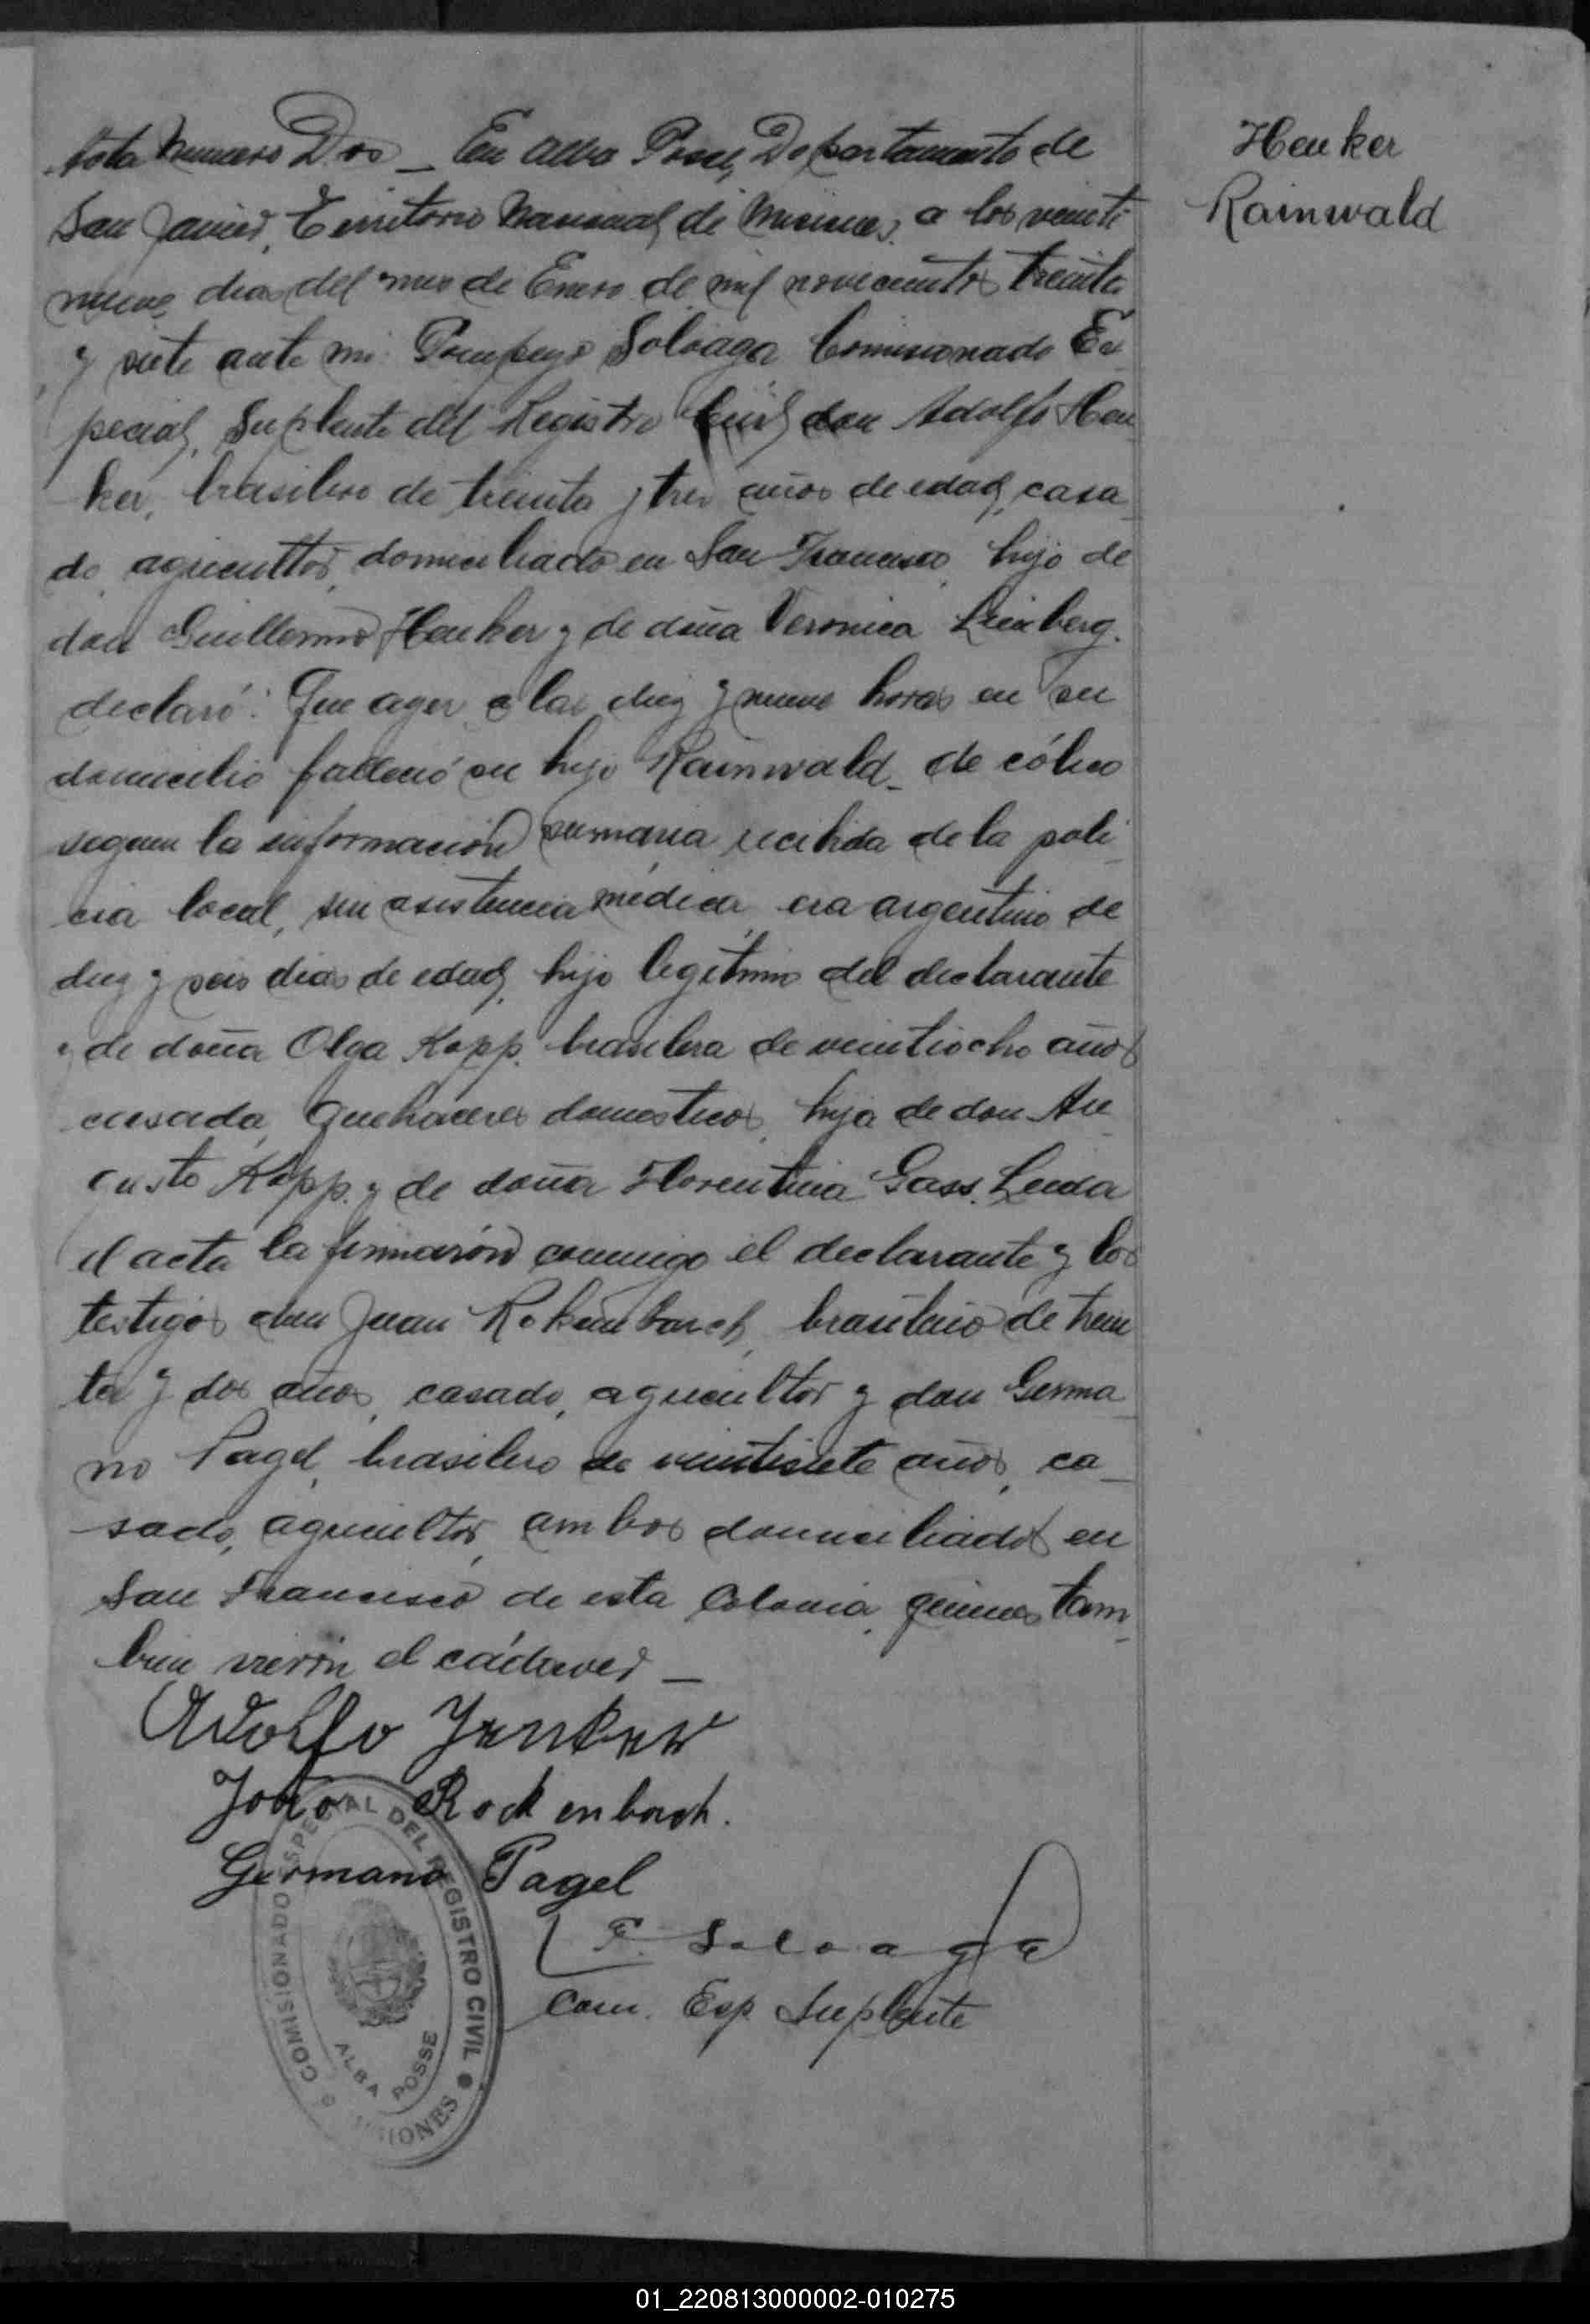 Acta Numero Dos _ En Alba Posse, Departamento de
San Javier, Territorio Nacional de Misiones, a los veinte
nueve dias del mes de Enero de mil novecientos treinta
y siete ante mi Pompeyo Soloaga Comisionado Es-
pecial, Suplente del Registro Civil don Adolfo Hen-
ker, brasilero de treinta y tres años de edad, casa-
do, agricultor, domiciliado en San Francisco, hijo de
don Guillermo Henker y de doña Veronica
declaró: Que ayer a las diez y nueve horas en su
domicilio falleció su hijo Rainwald_ de cólico
seguen la información sumaria recibida de la poli-
cia local, sin asistencia médica, era argentino de
diez y seis dias de edad, hijo legítimo del declarante
y de doña Olga Kopp, brasilera de veintiocho años
casada, quehaceres domesticos, hija de don Au-
gusto Kopp y de doña Florentina Gass. Leida
el acta la firmarón conmigo el declarante y los
testigos don Juan brasilero de trein-
ta y dos años, casado, agricultor y don Germa-
no Pagel, brasilero de veintisiete años, ca-
sado, agricultor, ambos domiciliados en
San Francisco de esta Colonia, quienes tam-
bien vierón el cádaver _
Adolfo Henker
João Rockenbach.
Germano Pagel
P. Soloaga
Com. Esp Suplente
COMISIONADO ESPECIAL DEL REGISTRO CIVIL
ALBA POSSE
MISIONES
Henker
Rainwald
01_220813000002-010275